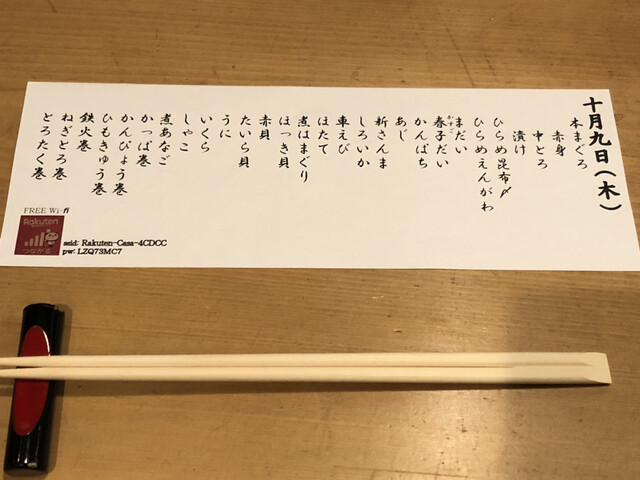 十月九日(木)
本まぐろ
赤身
中とろ
漬け
ひらめ昆布〆
ひらめえんがわ
まだい
かすご
春子だい
かんぱち
あじ
新さんま
しろいか
車えび
ほたて
煮はまぐり
ほっき貝
赤貝
たいら貝
うに
いくら
しゃこ
煮あなご
かっぱ巻
かんぴょう巻
ひもきゅう巻
鉄火巻
ねぎとろ巻
とろたく巻
FREE Wi-fi
Rakuten
つながる
ssid: Rakuten-Casa-4CDCC
pw: LZQ73MC7